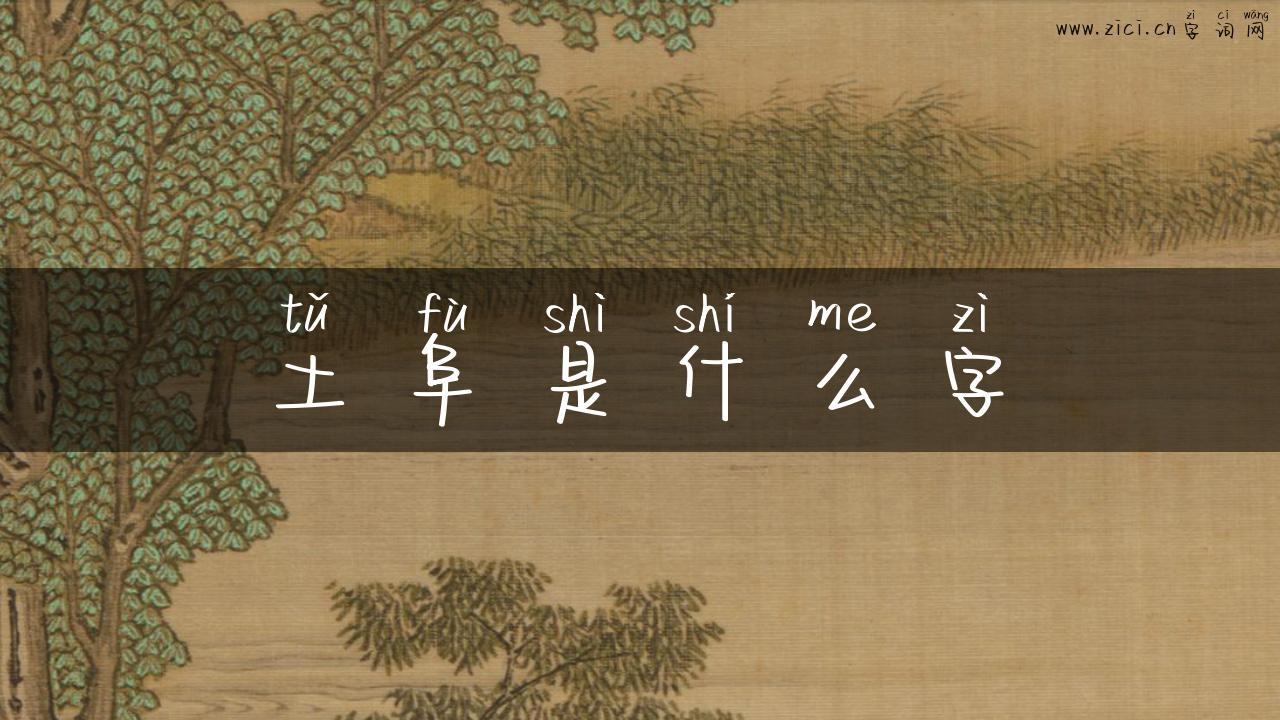 zì cí wǎng
www.zici.cn字词网
tǔ fù shì shí me zì
土阜是什么字